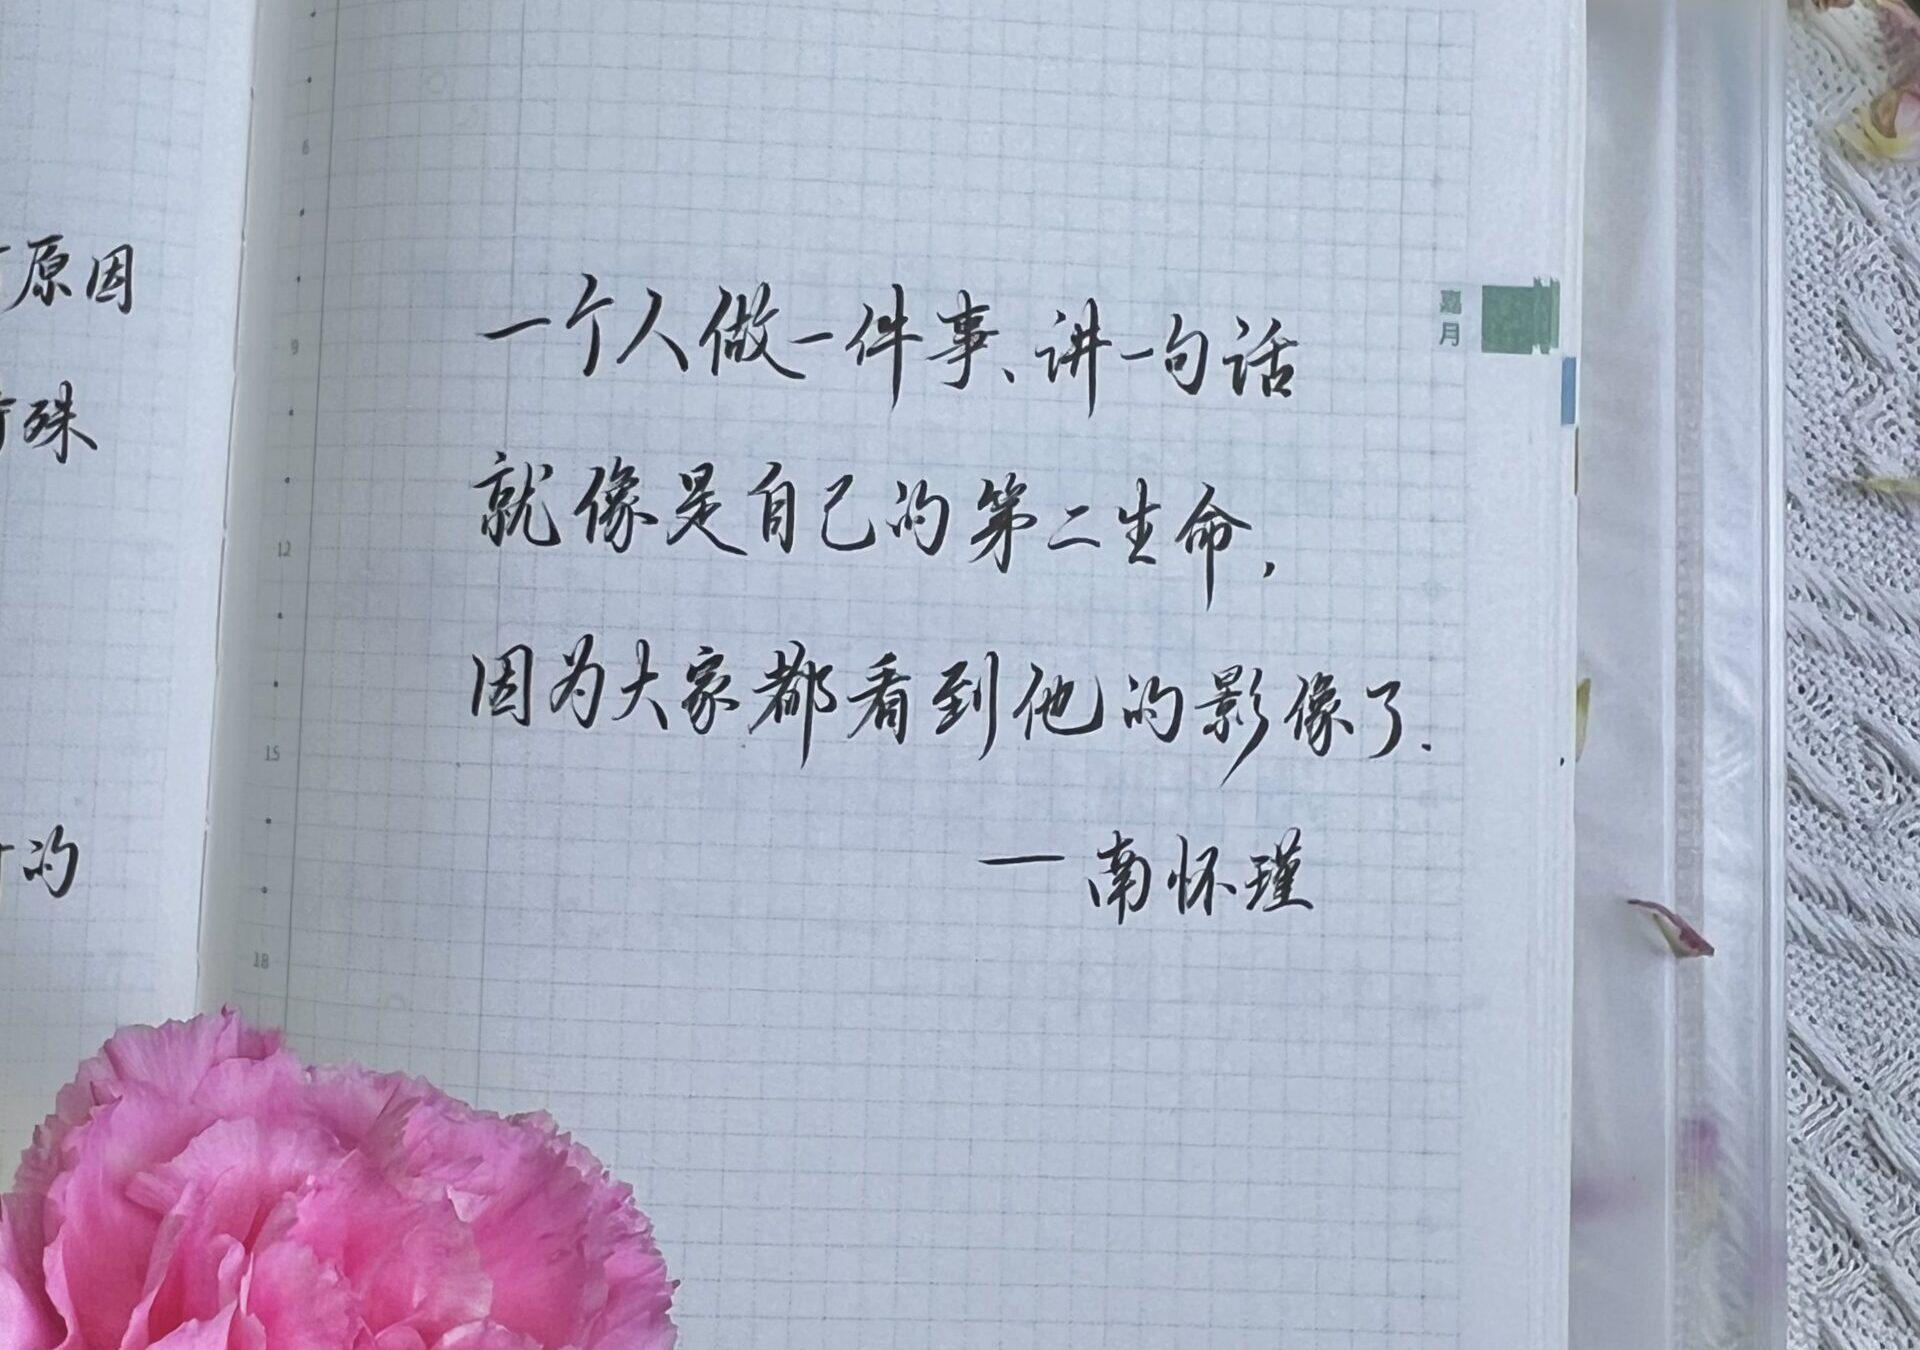 原因
殊
的
6
9
12
15
18
一个人做一件事、讲一句话
就像是自己的第二生命,
因为大家都看到他的影像了.
—南怀瑾
嘉月